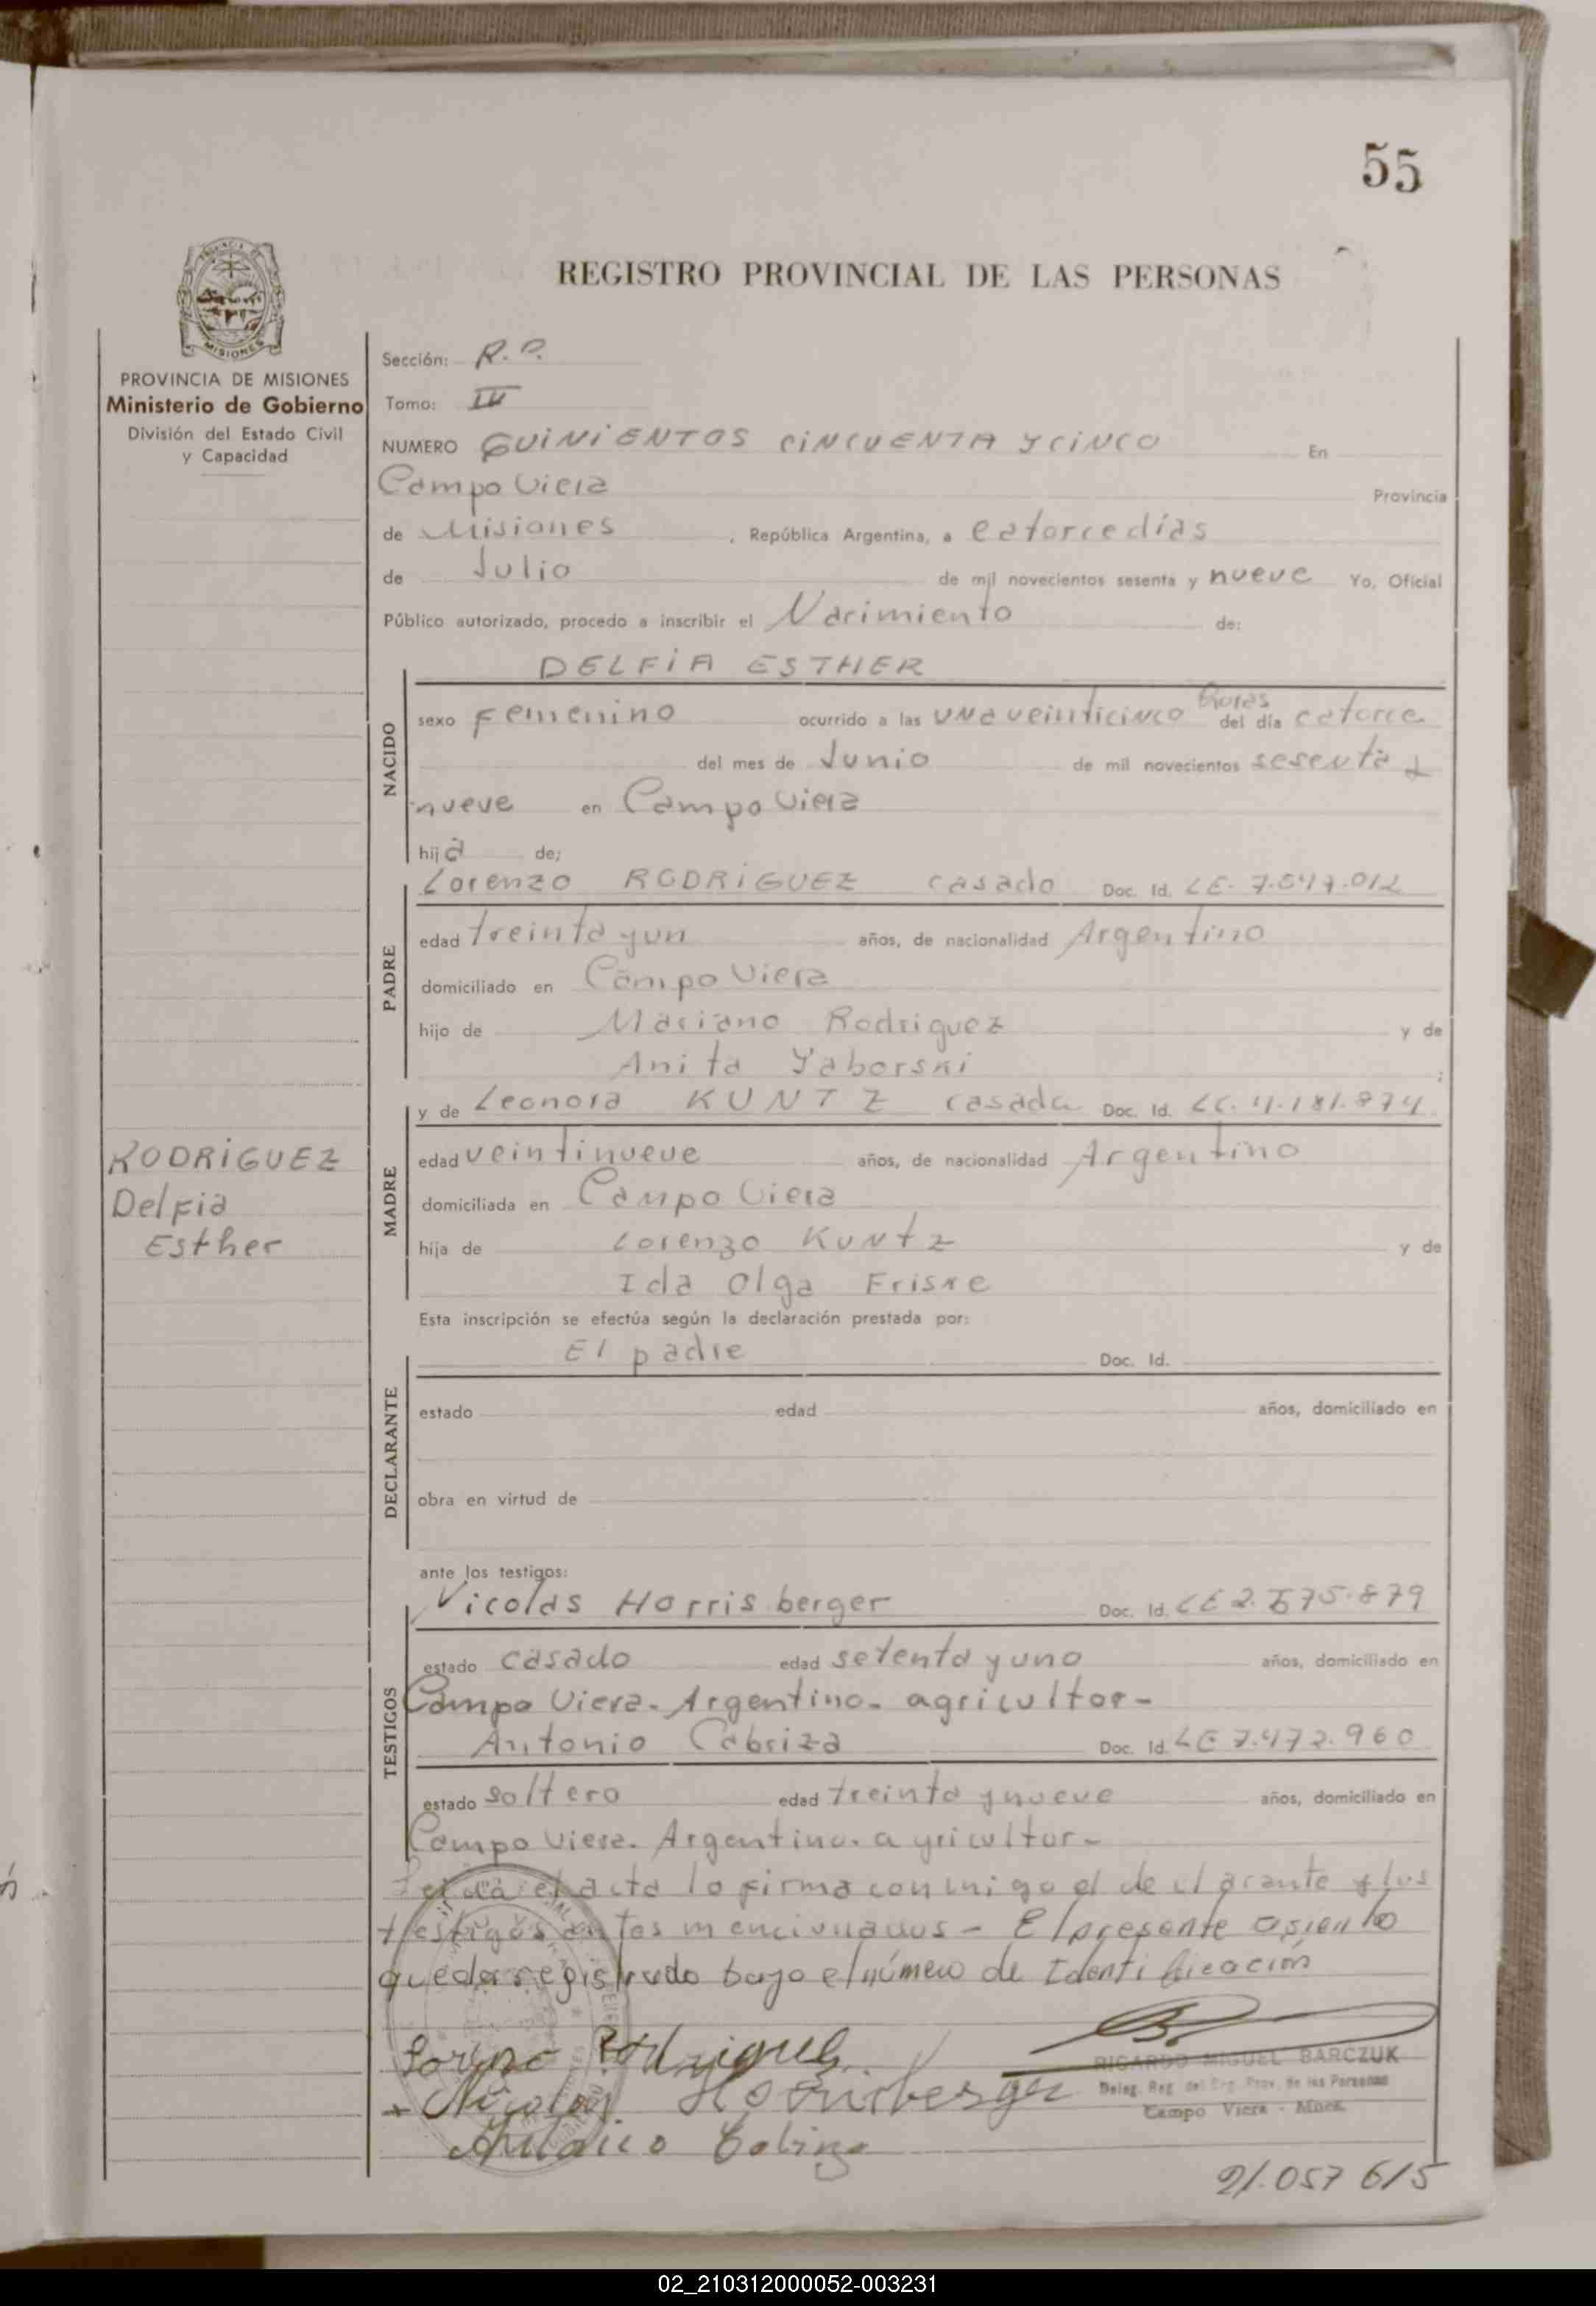 55
REGISTRO PROVINCIAL DE LAS PERSONAS
PROVINCIA DE MISIONES
Ministerio de Gobierno
División del Estado Civil
y Capacidad
Sección: R.P.
Tomo: III
NUMERO QUINIENTOS CINCUENTA Y CINCO En
Campo Viera Provincia
de Misiones , República Argentina, a catorce días
de Julio de mil novecientos sesenta y nueve Yo, Oficial
Público autorizado, procedo a inscribir el Nacimiento de:
DELFIA ESTHER
NACIDO
sexo Femenino ocurrido a las una veinticinco horas del día catorce
del mes de Junio de mil novecientos sesenta y
nueve en Campo Viera
hija de;
PADRE
Lorenzo RODRIGUEZ casado Doc. Id. LE. 7.547.012
edad treinta y un años, de nacionalidad Argentino
domiciliado en Campo Viera
hijo de Mariano Rodriguez y de
Anita Yaborski ;
MADRE
y de Leonora KUNTZ casada Doc. Id. LC. 4.181.874
edad veintinueve años, de nacionalidad Argentino
domiciliada en Campo Viera
hija de Lorenzo Kuntz y de
Ida Olga Friske
RODRIGUEZ
Delfia
Esther
Esta inscripción se efectúa según la declaración prestada por:
DECLARANTE
El padre Doc. Id.
estado edad años, domiciliado en
obra en virtud de
ante los testigos:
TESTIGOS
Nicolas Horrisberger Doc. Id. LE 2.575.879
estado casado edad setenta y uno años, domiciliado en
Campo Viera. Argentino. agricultor-
Antonio Cabriza Doc. Id. LE 7.472.960
estado soltero edad treinta y nueve años, domiciliado en
Campo Viera. Argentino. agricultor-
Leida el acta lo firma conmigo el declarante y los
testigos antes mencionados - El presente asiento
queda registrado bajo el número de Identificación
Lorenzo Rodriguez
Nicolas Horrisberger
Antonio Cabriza
RICARDO MIGUEL BARCZUK
Deleg. Reg. del Prov. de las Personas
Campo Viera - Mnes.
21.057 615
02_210312000052-003231